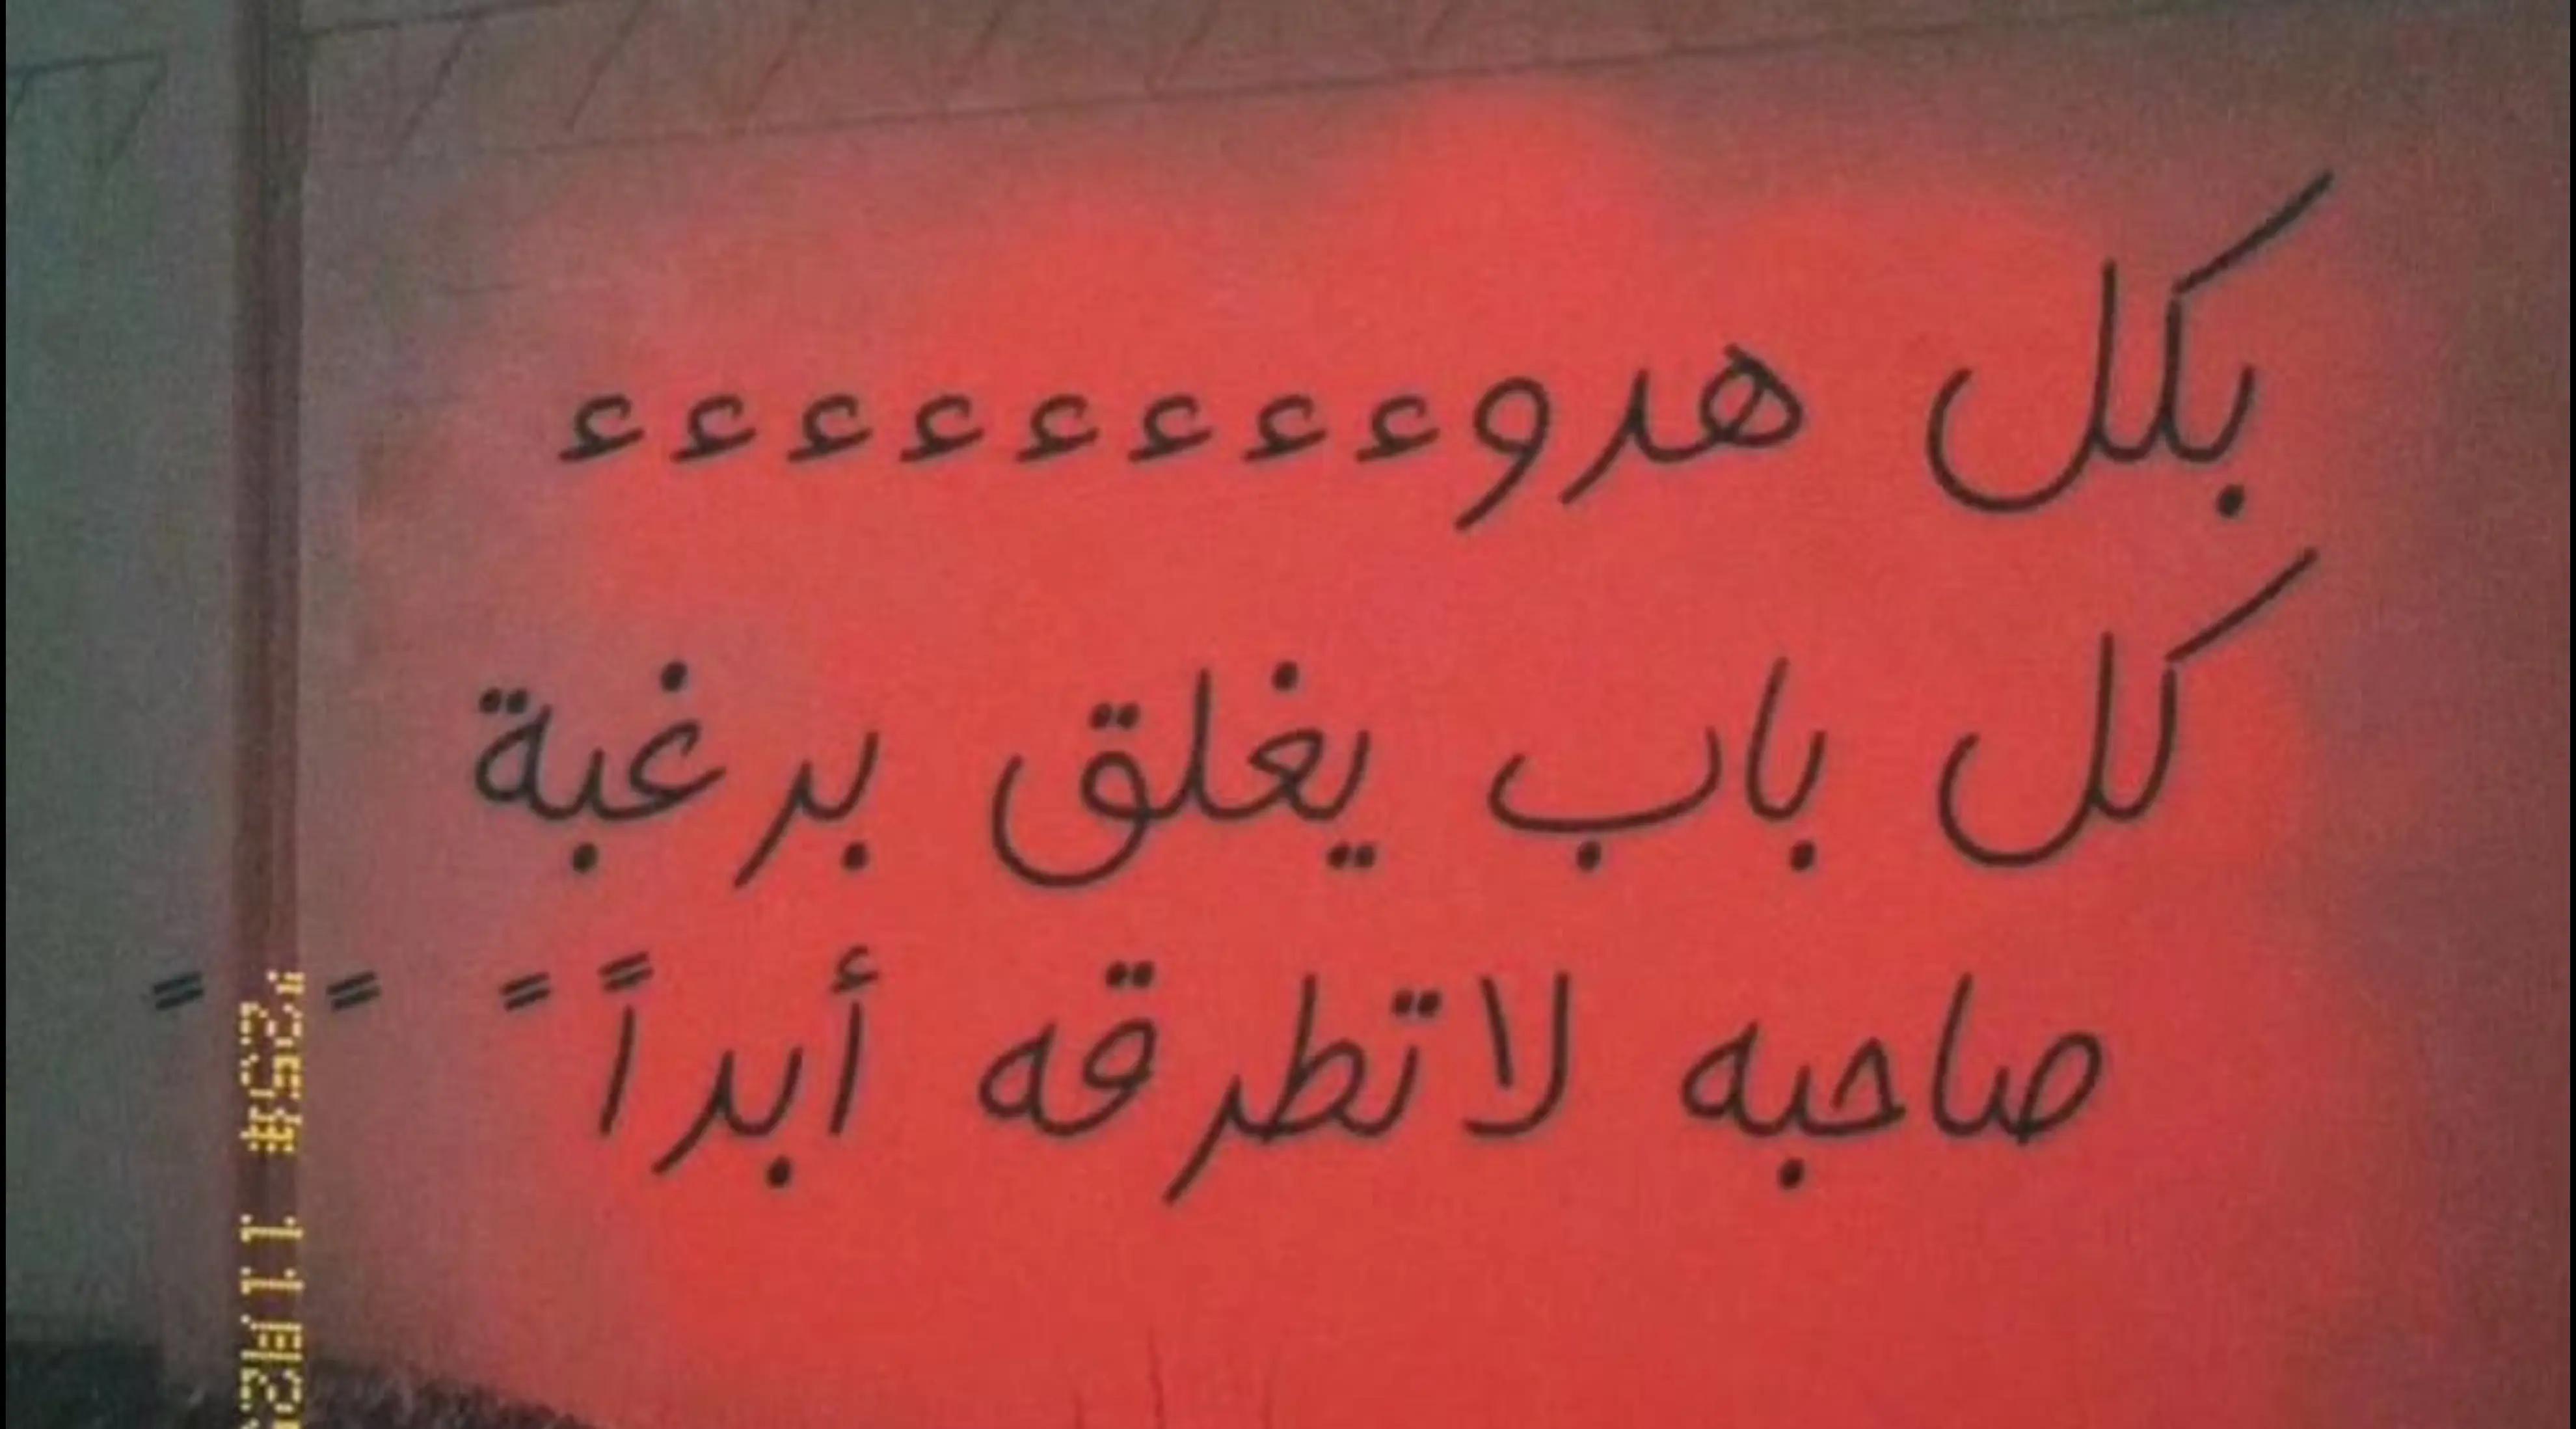 بكل هدوءءءءءءءء
كل باب يغلق برغبة
صاحبه لاتطرقه أبداً ً ً ً